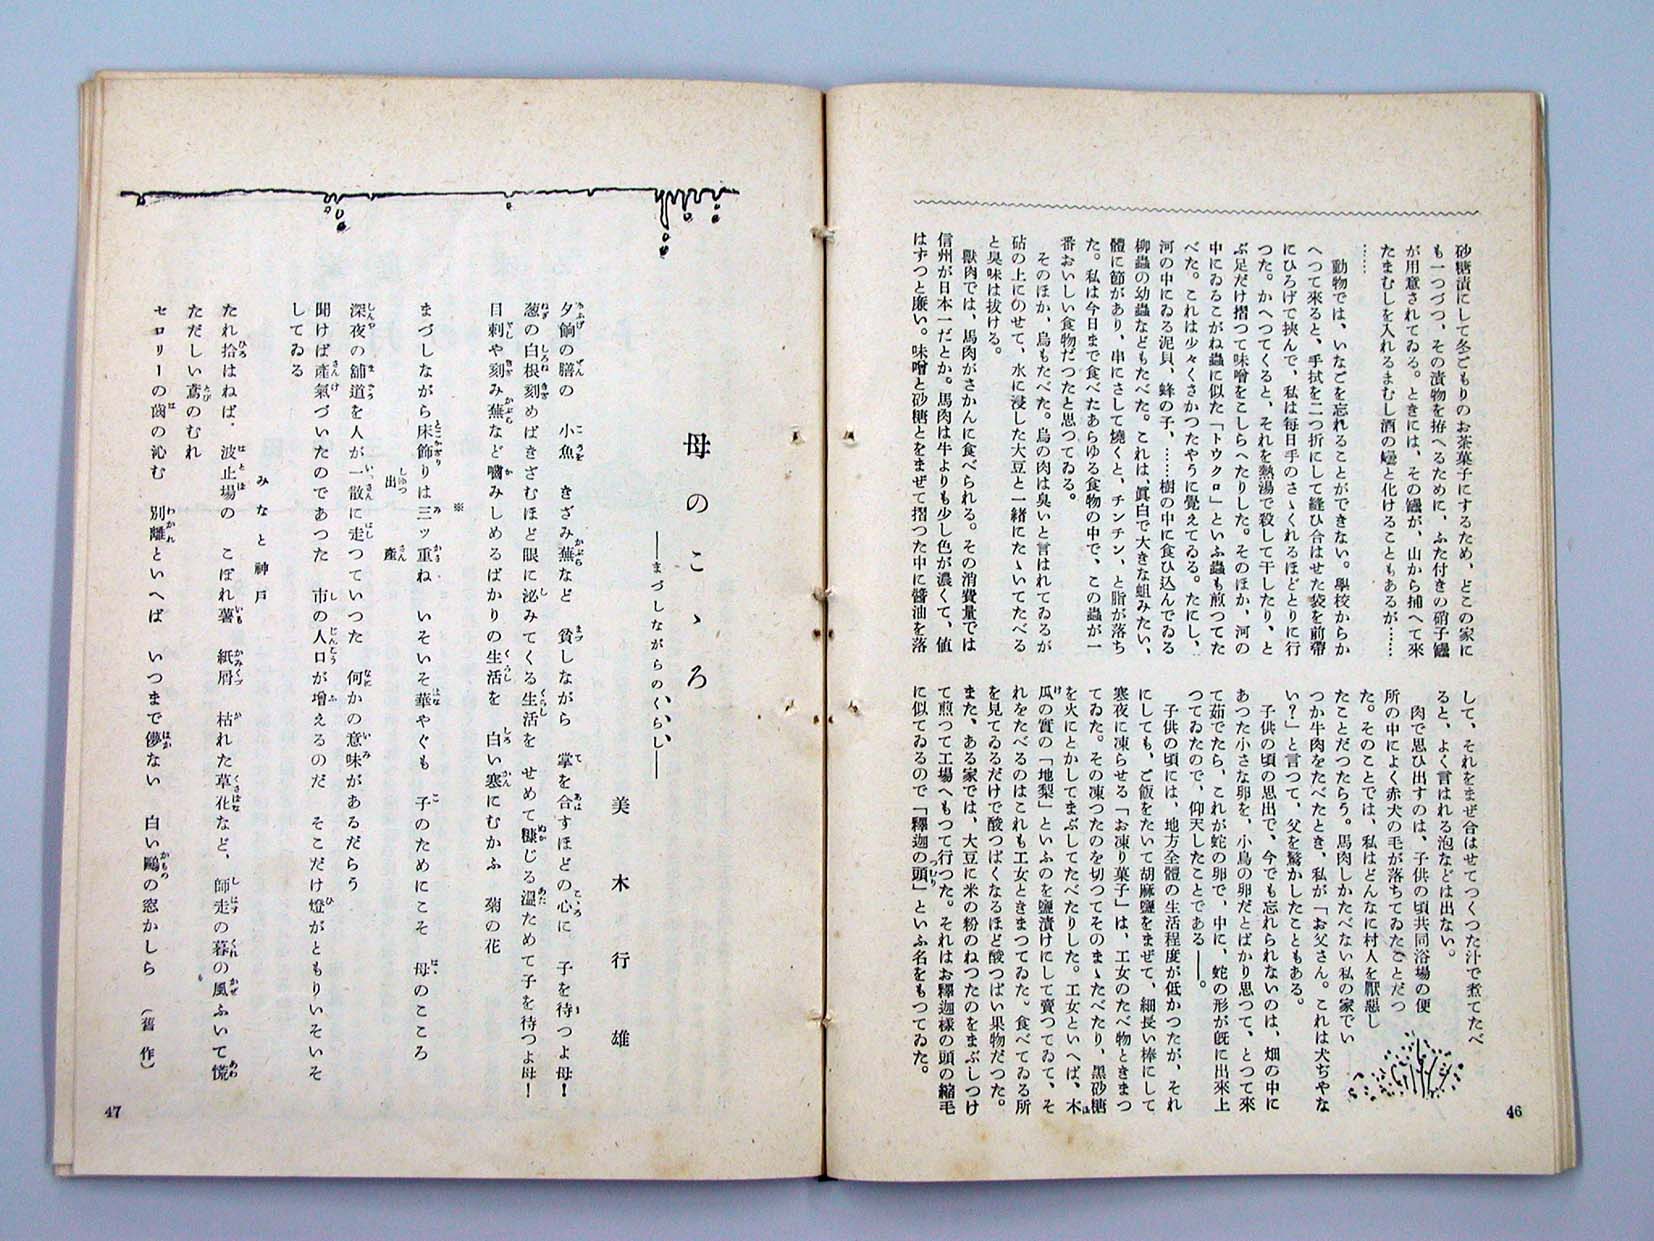 砂糖漬にして冬ごもりのお茶菓子にするため、どこの家に
も一つづつ、その漬物を拵へるために、ふた付きの硝子罎
が用意されてゐる。ときには、その罎が、山から捕へて來
たまむしを入れるまむし酒の罎と化けることもあるが……
……
動物では、いなごを忘れることができない。學校からか
へつて來ると、手拭を二つ折にして縫ひ合はせた袋を前帶
にひろげて挾んで、私は每日手のさゝくれるほどとりに行
つた。かへつてくると、それを熱湯で殺して干したり、と
ぶ足だけ摺つて味噌をこしらへたりした。そのほか、河の
中にゐるこがね蟲に似た「トウクロ」といふ蟲も煎つてた
べた。これは少々くさかつたやうに覺えてゐる。たにし、
河の中にゐる泥貝、蜂の子、……樹の中に食ひ込んでゐる
柳蟲の幼蟲などもたべた。これは、眞白で大きな蛆みたい、
體に節があり、串にさして燒くと、チンチン、と脂が落ち
た。私は今日まで食べたあらゆる食物の中で、この蟲が一
番おいしい食物だつたと思つてゐる。
そのほか、烏もたべた。烏の肉は臭いと言はれてゐるが
砧の上にのせて、水に浸した大豆と一緒にたゝいてたべる
と臭味は拔ける。
獸肉では、馬肉がさかんに食べられる。その消費量では
信州が日本一だとか。馬肉は牛よりも少し色が濃くて、値
はずつと廉い。味噌と砂糖とをまぜて摺つた中に醬油を落
して、それをまぜ合はせてつくつた汁で煮てたべ
ると、よく言はれる泡などは出ない。
肉で思ひ出すのは、子供の頃共同浴場の便
所の中によく赤犬の毛が落ちてゐたことだつ
た。そのことでは、私はどんなに村人を厭惡し
たことだつたらう。馬肉しかたべない私の家でい
つか牛肉をたべたとき、私が「お父さん。これは犬ぢやな
い？」と言つて、父を驚かしたこともある。
子供の頃の思出で、今でも忘れられないのは、畑の中に
あつた小さな卵を、小鳥の卵だとばかり思つて、とつて來
て茹でたら、これが蛇の卵で、中に、蛇の形が旣に出來上
つてゐたので、仰天したことである――。
子供の頃には、地方全體の生活程度が低かつたが、それ
にしても、ご飯をたいて胡麻鹽をまぜて、細長い棒にして
寒夜に凍らせる「お凍り菓子」は、工女のたべ物ときまつ
てゐた。その凍つたのを切つてそのまゝたべたり、黑砂糖
を火にとかしてまぶしてたべたりした。工女といへば、木
瓜の實の「地梨」といふのを鹽漬けにして賣つてゐて、そ
れをたべるのはこれも工女ときまつてゐた。食べてゐる所
を見てゐるだけで酸つぱくなるほど酸つぱい果物だつた。
また、ある家では、大豆に米の粉のねつたのをまぶしつけ
て煎つて工場へもつて行つた。それはお釋迦樣の頭の縮毛
に似てゐるので「釋迦の頭」といふ名をもつてゐた。
46
母のこゝろ
――まづしながらのくらし――
美木行雄
夕餉の膳の　小魚　きざみ蕪など　貧しながら　掌を合すほどの心に　子を待つよ母！
葱の白根刻めばきざむほど眼に泌みてくる生活を　せめて糠じる溫ためて子を待つよ母！
目刺や刻み蕪など嚙みしめるばかりの生活を　白い寒にむかふ　菊の花
※
まづしながら床飾りは三ッ重ね　いそいそ華やぐも　子のためにこそ　母のこころ
出產
深夜の舖道を人が一散に走つていつた　何かの意味があるだらう
聞けば產氣づいたのであつた　市の人口が增えるのだ　そこだけ燈がともりいそいそ
してゐる
みなと神戶
たれ拾はねば、波止場の　こぼれ薯　紙屑　枯れた草花など、師走の暮の風ふいて慌
ただしい鳶のむれ
セロリーの齒の沁む　別離といへば　いつまで儚ない　白い鷗の窓かしら　（舊作）
47